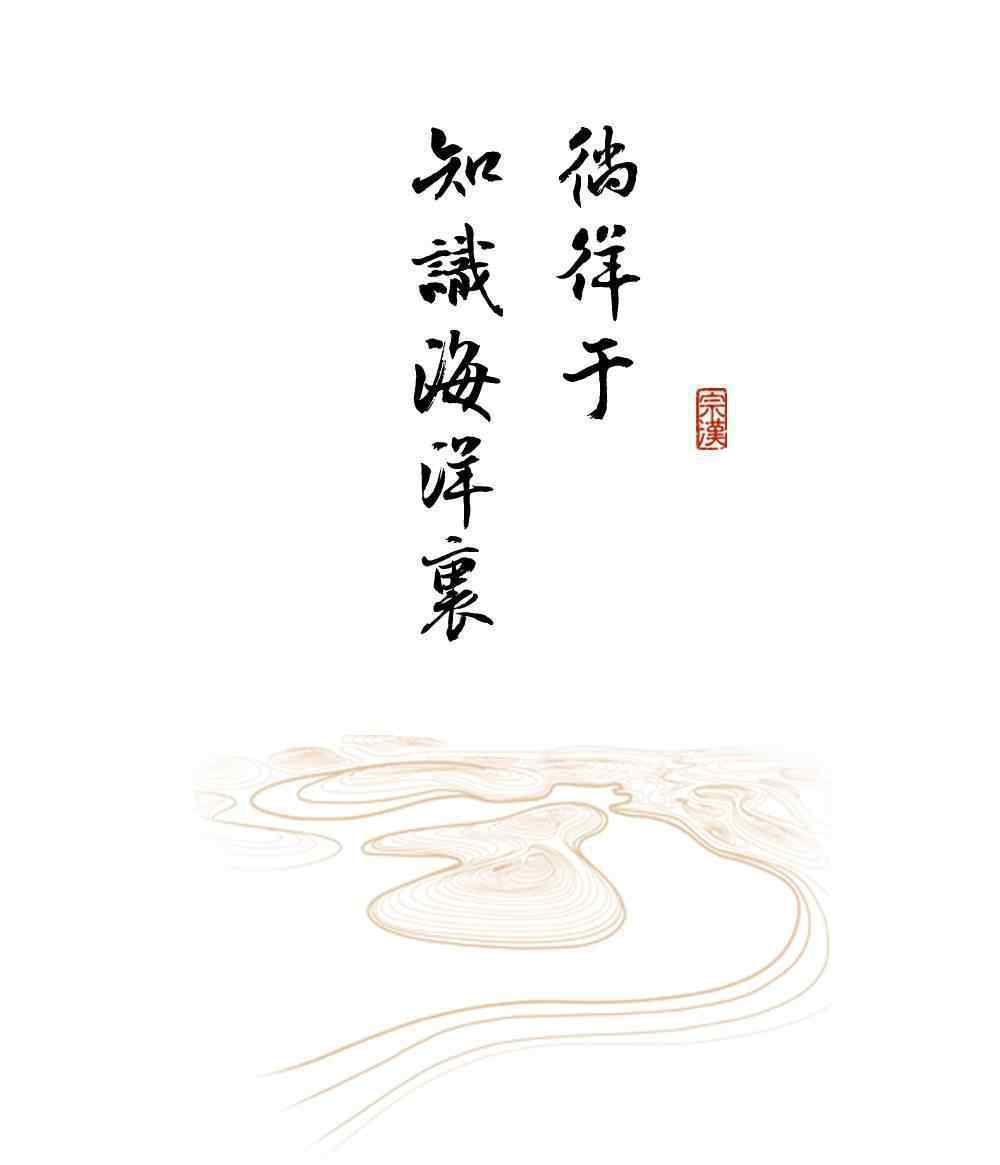 徜徉于
知識海洋裏
宗漢